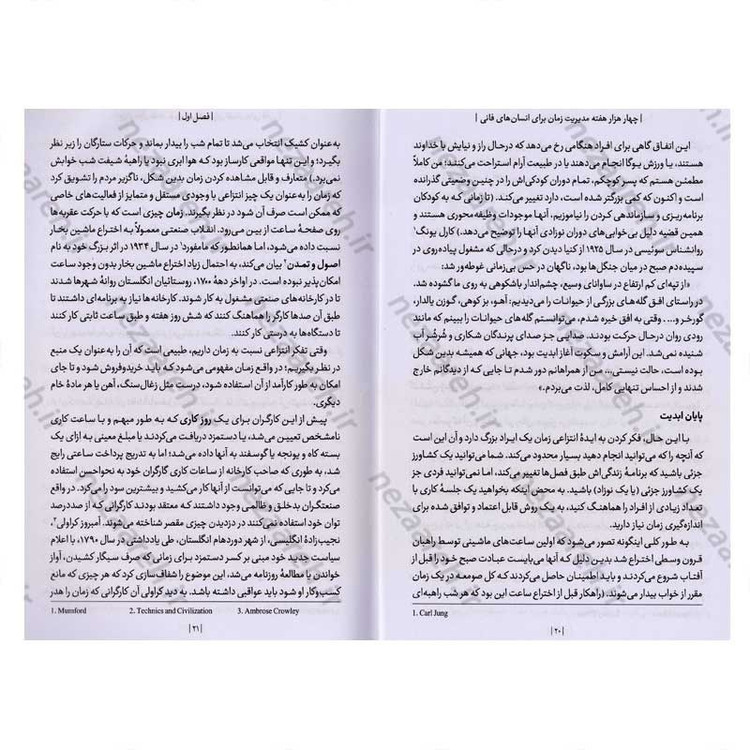 | چهار هزار هفته مدیریت زمان برای انسان‌های فانی |
این اتفاق گاهی برای افراد هنگامی رخ می‌دهد که درحال راز و نیایش با خداوند
هستند، یا ورزش یوگا انجام می‌دهند یا در طبیعت آرام استراحت می‌کنند؛ من کاملاً
مطمئن هستم که پسر کوچکم، تمام دوران کودکی‌اش را در چنین وضعیتی گذرانده
است و اکنون که کمی بزرگتر شده است، قرار است تغییر کند. (تا زمانی که به کودکان
برنامه‌ریزی و سازماندهی کردن را نیاموزیم، آنها موجودات وظیفه‌محوری هستند و
همین قضیه دلیل بی‌خوابی‌های دوران نوزادی آنها را توضیح می‌دهد.) کارل یونگ¹
روانشناس سوئیسی در سال ۱۹۲۵ از کنیا دیدن کرد و درحالی که مشغول پیاده‌روی در
سپیده‌دم صبح در میان جنگل‌ها بود، ناگهان در حس بی‌زمانی غوطه‌ور شد:
«از تپه‌ای کم ارتفاع در ساوانای وسیع، چشم‌انداز باشکوهی به روی ما گشوده شد.
در راستای افق گله‌های بزرگی از حیوانات را می‌دیدیم: آهو، بز کوهی، گوزن یالدار،
گورخر و.... وقتی به افق خیره شدم، می‌توانستم گله‌های حیوانات را ببینم که مانند
رودی روان درحال حرکت بودند. صدایی جز صدای پرندگان شکاری و شُرشُر آب
شنیده نمی‌شد. این آرامش و سکوت آغاز ابدیت بود، جهانی که همیشه بدین شکل
بوده است، حالت نیستی... من از همراهانم دور شدم تا جایی که از دیدگانم خارج
شدند و از احساس تنهایی کامل، لذت می‌بردم.»
پایان ابدیت
با این حال، فکر کردن به ایدهٔ انتزاعی زمان یک ایراد بزرگ دارد و آن این است
که آنچه را که می‌توانید انجام دهید بسیار محدود می‌کند. شما می‌توانید یک کشاورز
جزئی باشید که برنامهٔ زندگی‌اش طبق فصل‌ها تغییر می‌کند، اما نمی‌توانید فردی جز
یک کشاورز جزئی (یا یک نوزاد) باشید. به محض اینکه بخواهید یک جلسهٔ کاری با
تعداد زیادی از افراد را هماهنگ کنید، به یک روش قابل اعتماد و توافق شده برای
اندازه‌گیری زمان نیاز دارید.
به طور کلی اینگونه تصور می‌شود که اولین ساعت‌های ماشینی توسط راهبان
قرون وسطی اختراع شد بدین دلیل که آنها می‌بایست عبادت صبح خود را قبل از
آفتاب شروع می‌کردند و باید اطمینان حاصل می‌کردند که کل صومعه در یک زمان
مقرر از خواب بیدار می‌شوند. (راهکار قبل از اختراع ساعت این بود که هر شب راهبه‌ای
1. Carl Jung
| ۲۰ |
| فصل اول |
به‌عنوان کشیک انتخاب می‌شد تا تمام شب را بیدار بماند و حرکات ستارگان را زیر نظر
بگیرد؛ و این تنها مواقعی کارساز بود که هوا ابری نبود یا راهبهٔ شیفت شب خوابش
نمی‌برد.) متعارف و قابل مشاهده کردن زمان بدین شکل، ناگزیر مردم را تشویق کرد
که زمان را به‌عنوان یک چیز انتزاعی با وجودی مستقل و متمایز از فعالیت‌های خاصی
که ممکن است صرف آن شود در نظر بگیرند. زمان چیزی است که با حرکت عقربه‌ها
روی صفحهٔ ساعت از بین می‌رود. انقلاب صنعتی معمولاً به اختراع ماشین بخار
نسبت داده می‌شود، اما همانطور که مامفورد¹ در سال ۱۹۳۴ در اثر بزرگ خود به نام
اصول و تمدن² بیان می‌کند، به احتمال زیاد اختراع ماشین بخار بدون وجود ساعت
امکان‌پذیر نبوده است. در اواخر دههٔ ۱۷۰۰، روستائیان انگلستان روانهٔ شهرها شدند
تا در کارخانه‌های صنعتی مشغول به کار شوند. کارخانه‌ها نیاز به برنامه‌ای داشتند تا
طبق آن صدها کارگر را هماهنگ کنند که شش روز هفته و طبق ساعت ثابتی کار کنند
تا دستگاه‌ها به درستی کار کنند.
وقتی تفکر انتزاعی نسبت به زمان داریم، طبیعی است که آن را به‌عنوان یک منبع
در نظر بگیریم؛ در واقع زمان مفهومی می‌شود که باید خریدوفروش شود و تا جای
امکان به طور کارآمد از آن استفاده شود، درست مثل زغال‌سنگ، آهن یا هر مادهٔ خام
دیگری.
پیش از این کارگران برای یک روز کاری که به طور مبهم و با ساعت کاری
نامشخص تعیین می‌شد، یا دستمزد دریافت می‌کردند یا مبلغ معینی به ازای یک
بسته کاه و یونجه یا گوسفند به آنها داده می‌شد؛ اما به تدریج پرداخت ساعتی رایج
شد، به طوری که صاحب کارخانه از ساعات کاری کارگران خود به نحواحسن استفاده
می‌کرد و تا جایی که می‌توانست از آنها کار می‌کشید و بیشترین سود را می‌کرد. در واقع
صنعتگران بدخلق و ظالمی وجود داشتند که معتقد بودند کارگرانی که از صددرصد
توان خود استفاده نمی‌کنند در دزدیدن چیزی مقصر شناخته می‌شوند. آمبروز کراولی³،
نجیب‌زادهٔ انگلیسی، از شهر دوردهام انگلستان، طی یادداشتی در سال ۱۷۹۰، با اعلام
سیاست جدید خود مبنی بر کسر دستمزد برای زمانی که صرف سیگار کشیدن، آواز
خواندن یا مطالعهٔ روزنامه می‌شد، این موضوع را شفاف‌سازی کرد که هر چیزی که مانع
کسب‌وکار او شود باید عواقبی داشته باشد. به دید کراولی آن کارگرانی که زمان را هدر
1. Mumsford 2. Technics and Civilization 3. Ambrose Crowley
| ۲۱ |
nezareh.ir